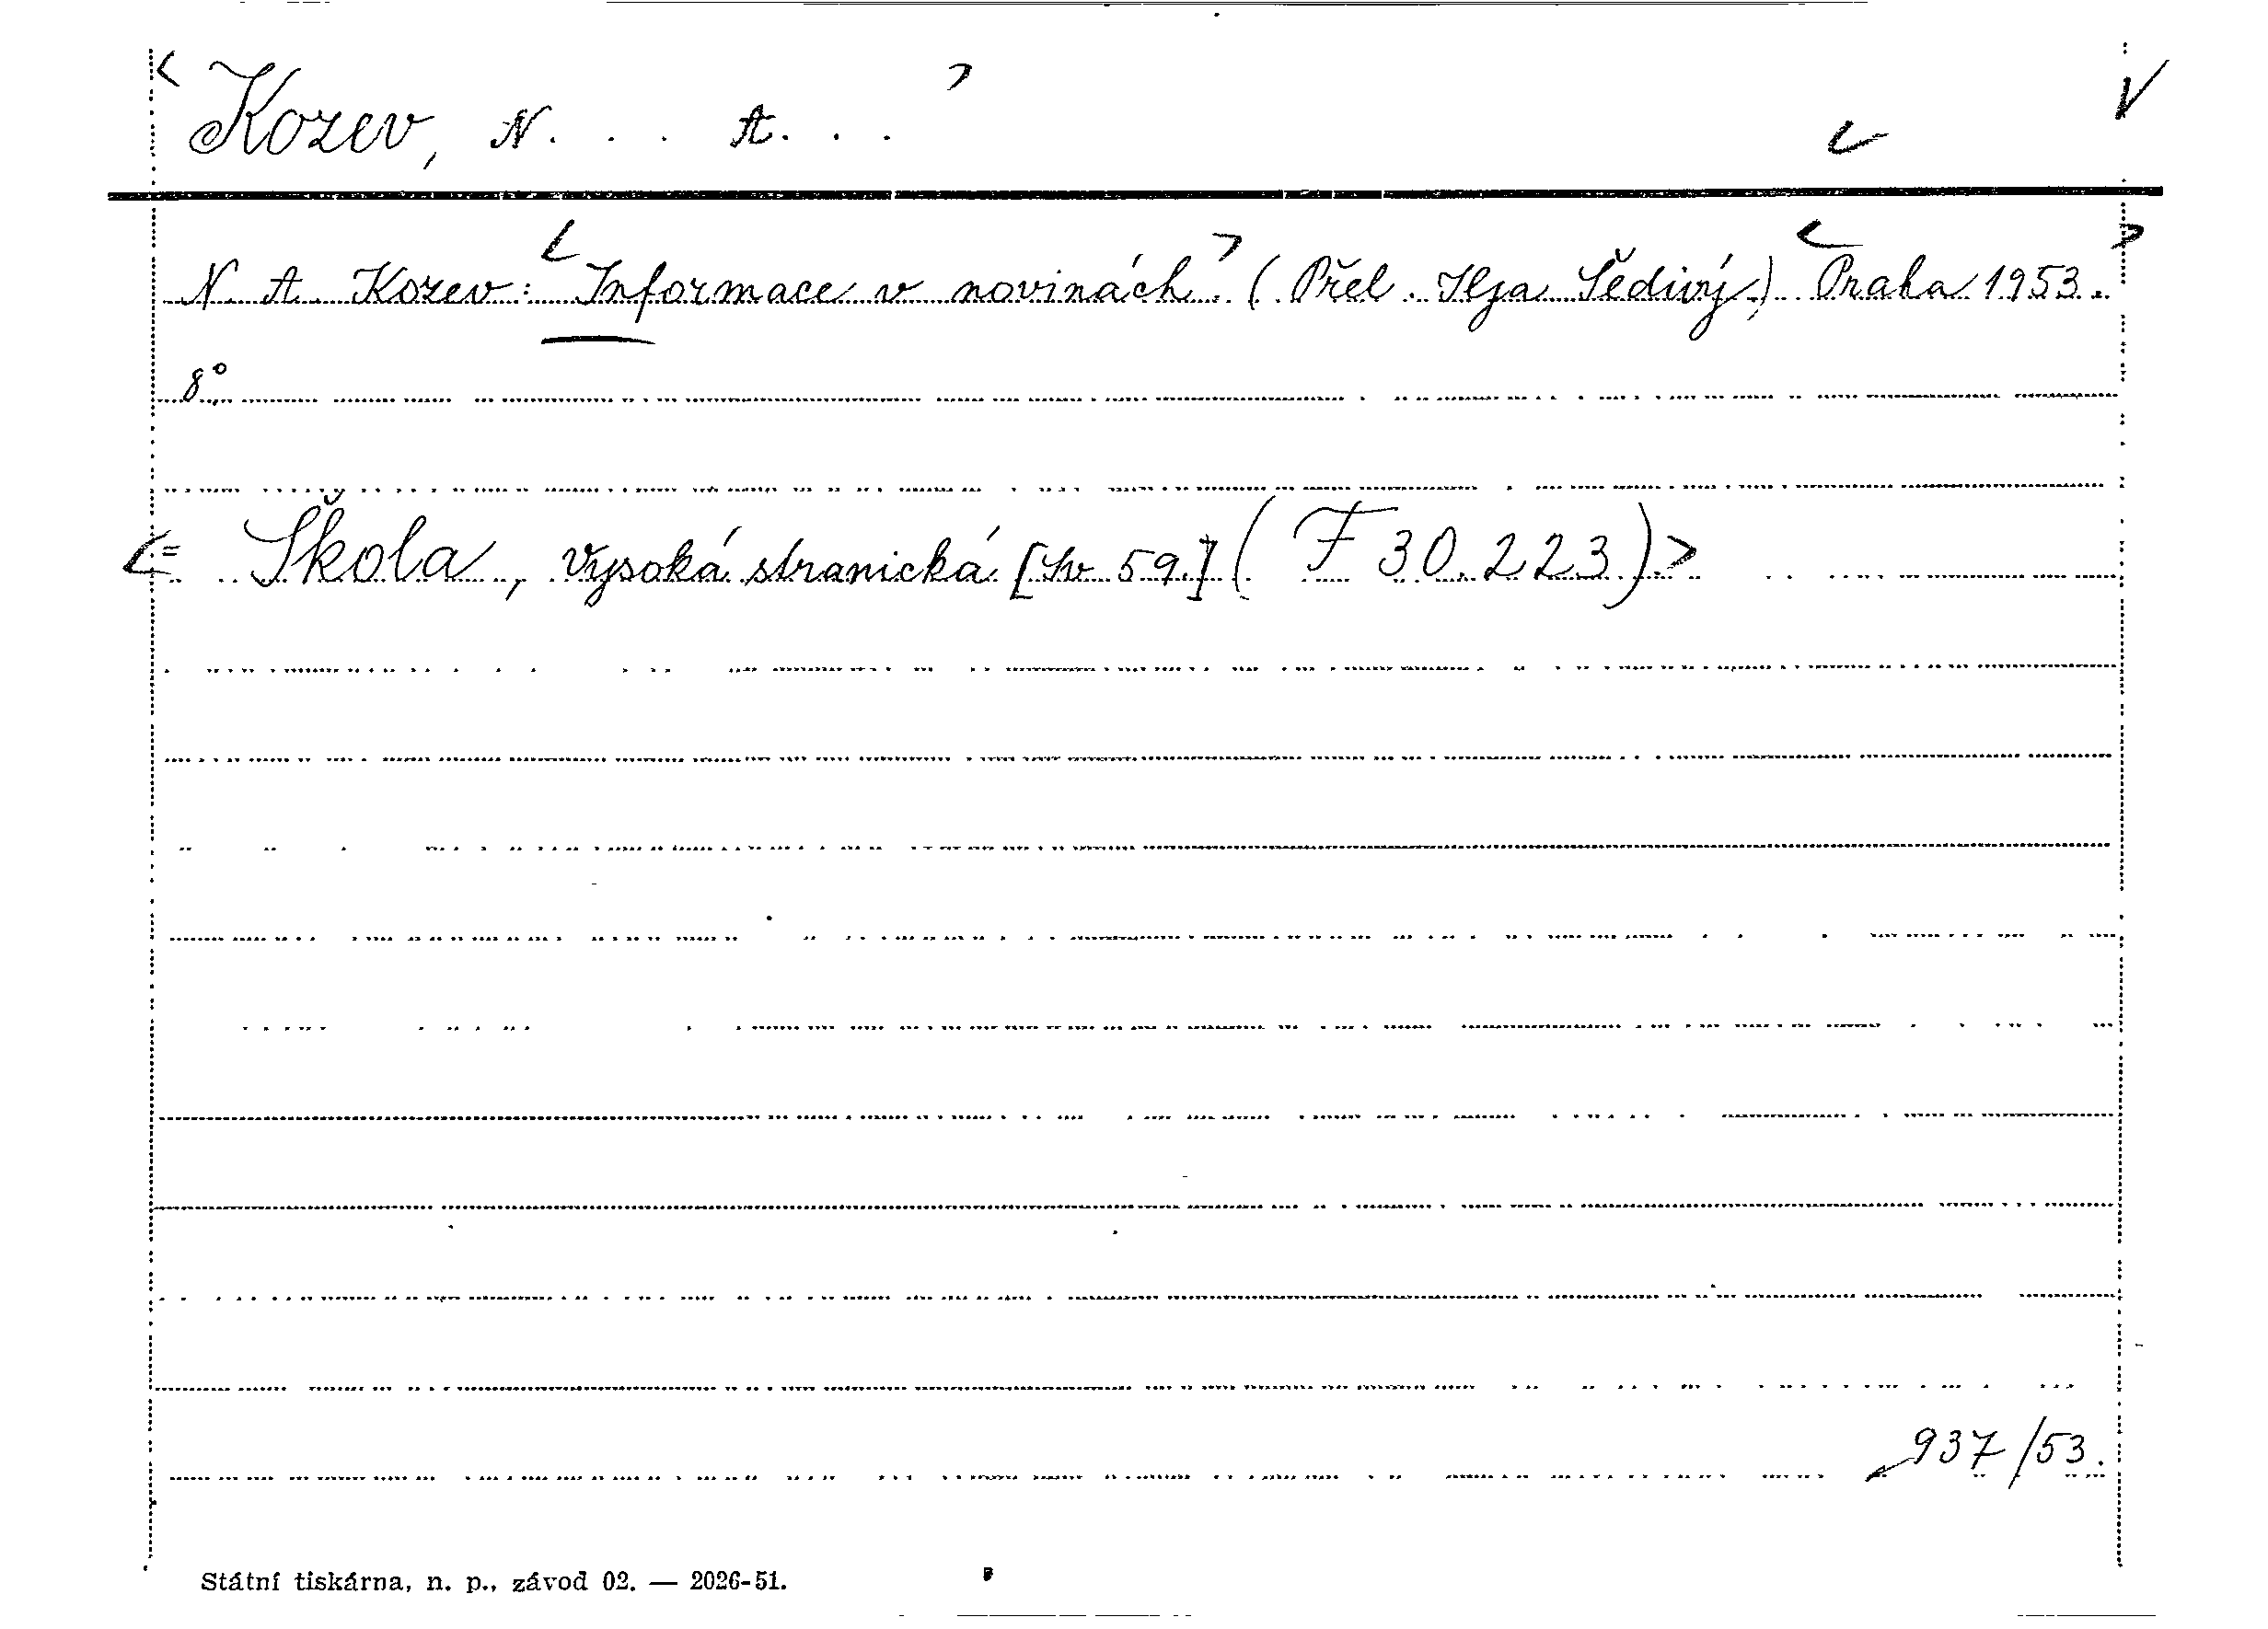 < Kozev, N. . . A. . . >
N. A. Kozev: < Informace v novinách. > (Přel. Ilja Šedivý.) < Praha 1953. >
8°.
<= Škola, vysoká stranická [Sv 59.] (F 30.223) >
937/53.
Státní tiskárna, n. p., závod 02. — 2026-51.